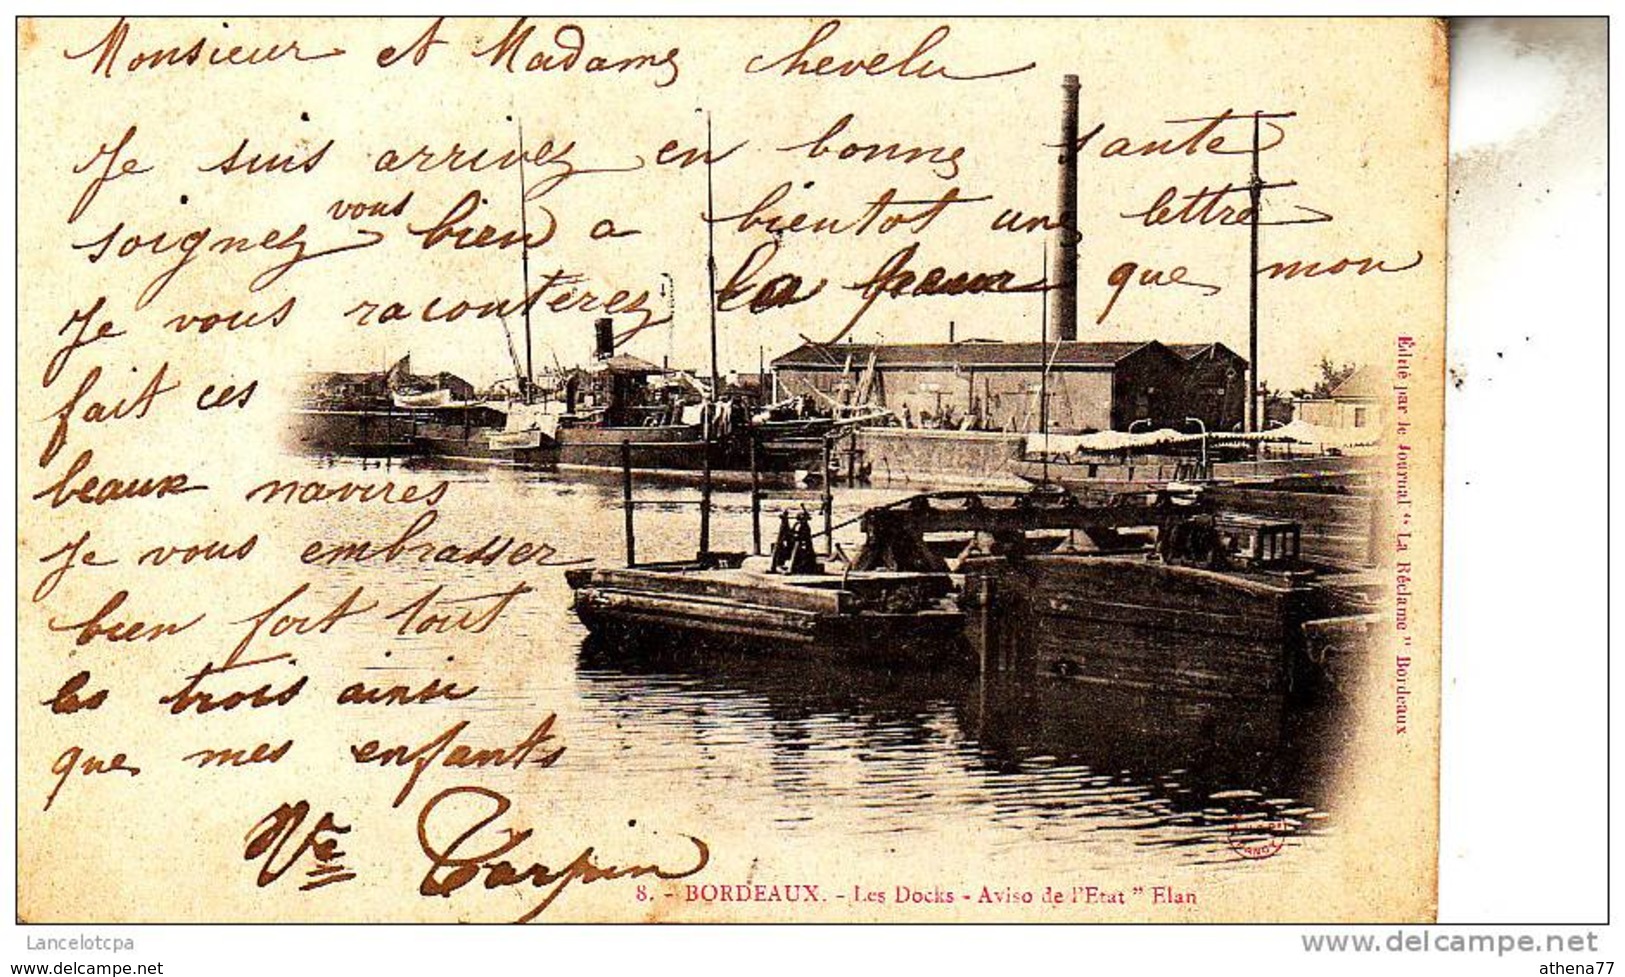 Monsieur et Madame chevelu
Je suis arrivez en bonne sante
soignez vous bien a bientot une lettre
Je vous raconterez la peur que mon
fait ces
beaux navires
Je vous embrasser
bien fort tout
les trois ainsi
que mes enfants
Vve Carpin
8. - BORDEAUX. - Les Docks - Aviso de l'Etat " Elan
Édité par le Journal " La Réclame " Bordeaux
Lancelotcpa
www.delcampe.net
athena77